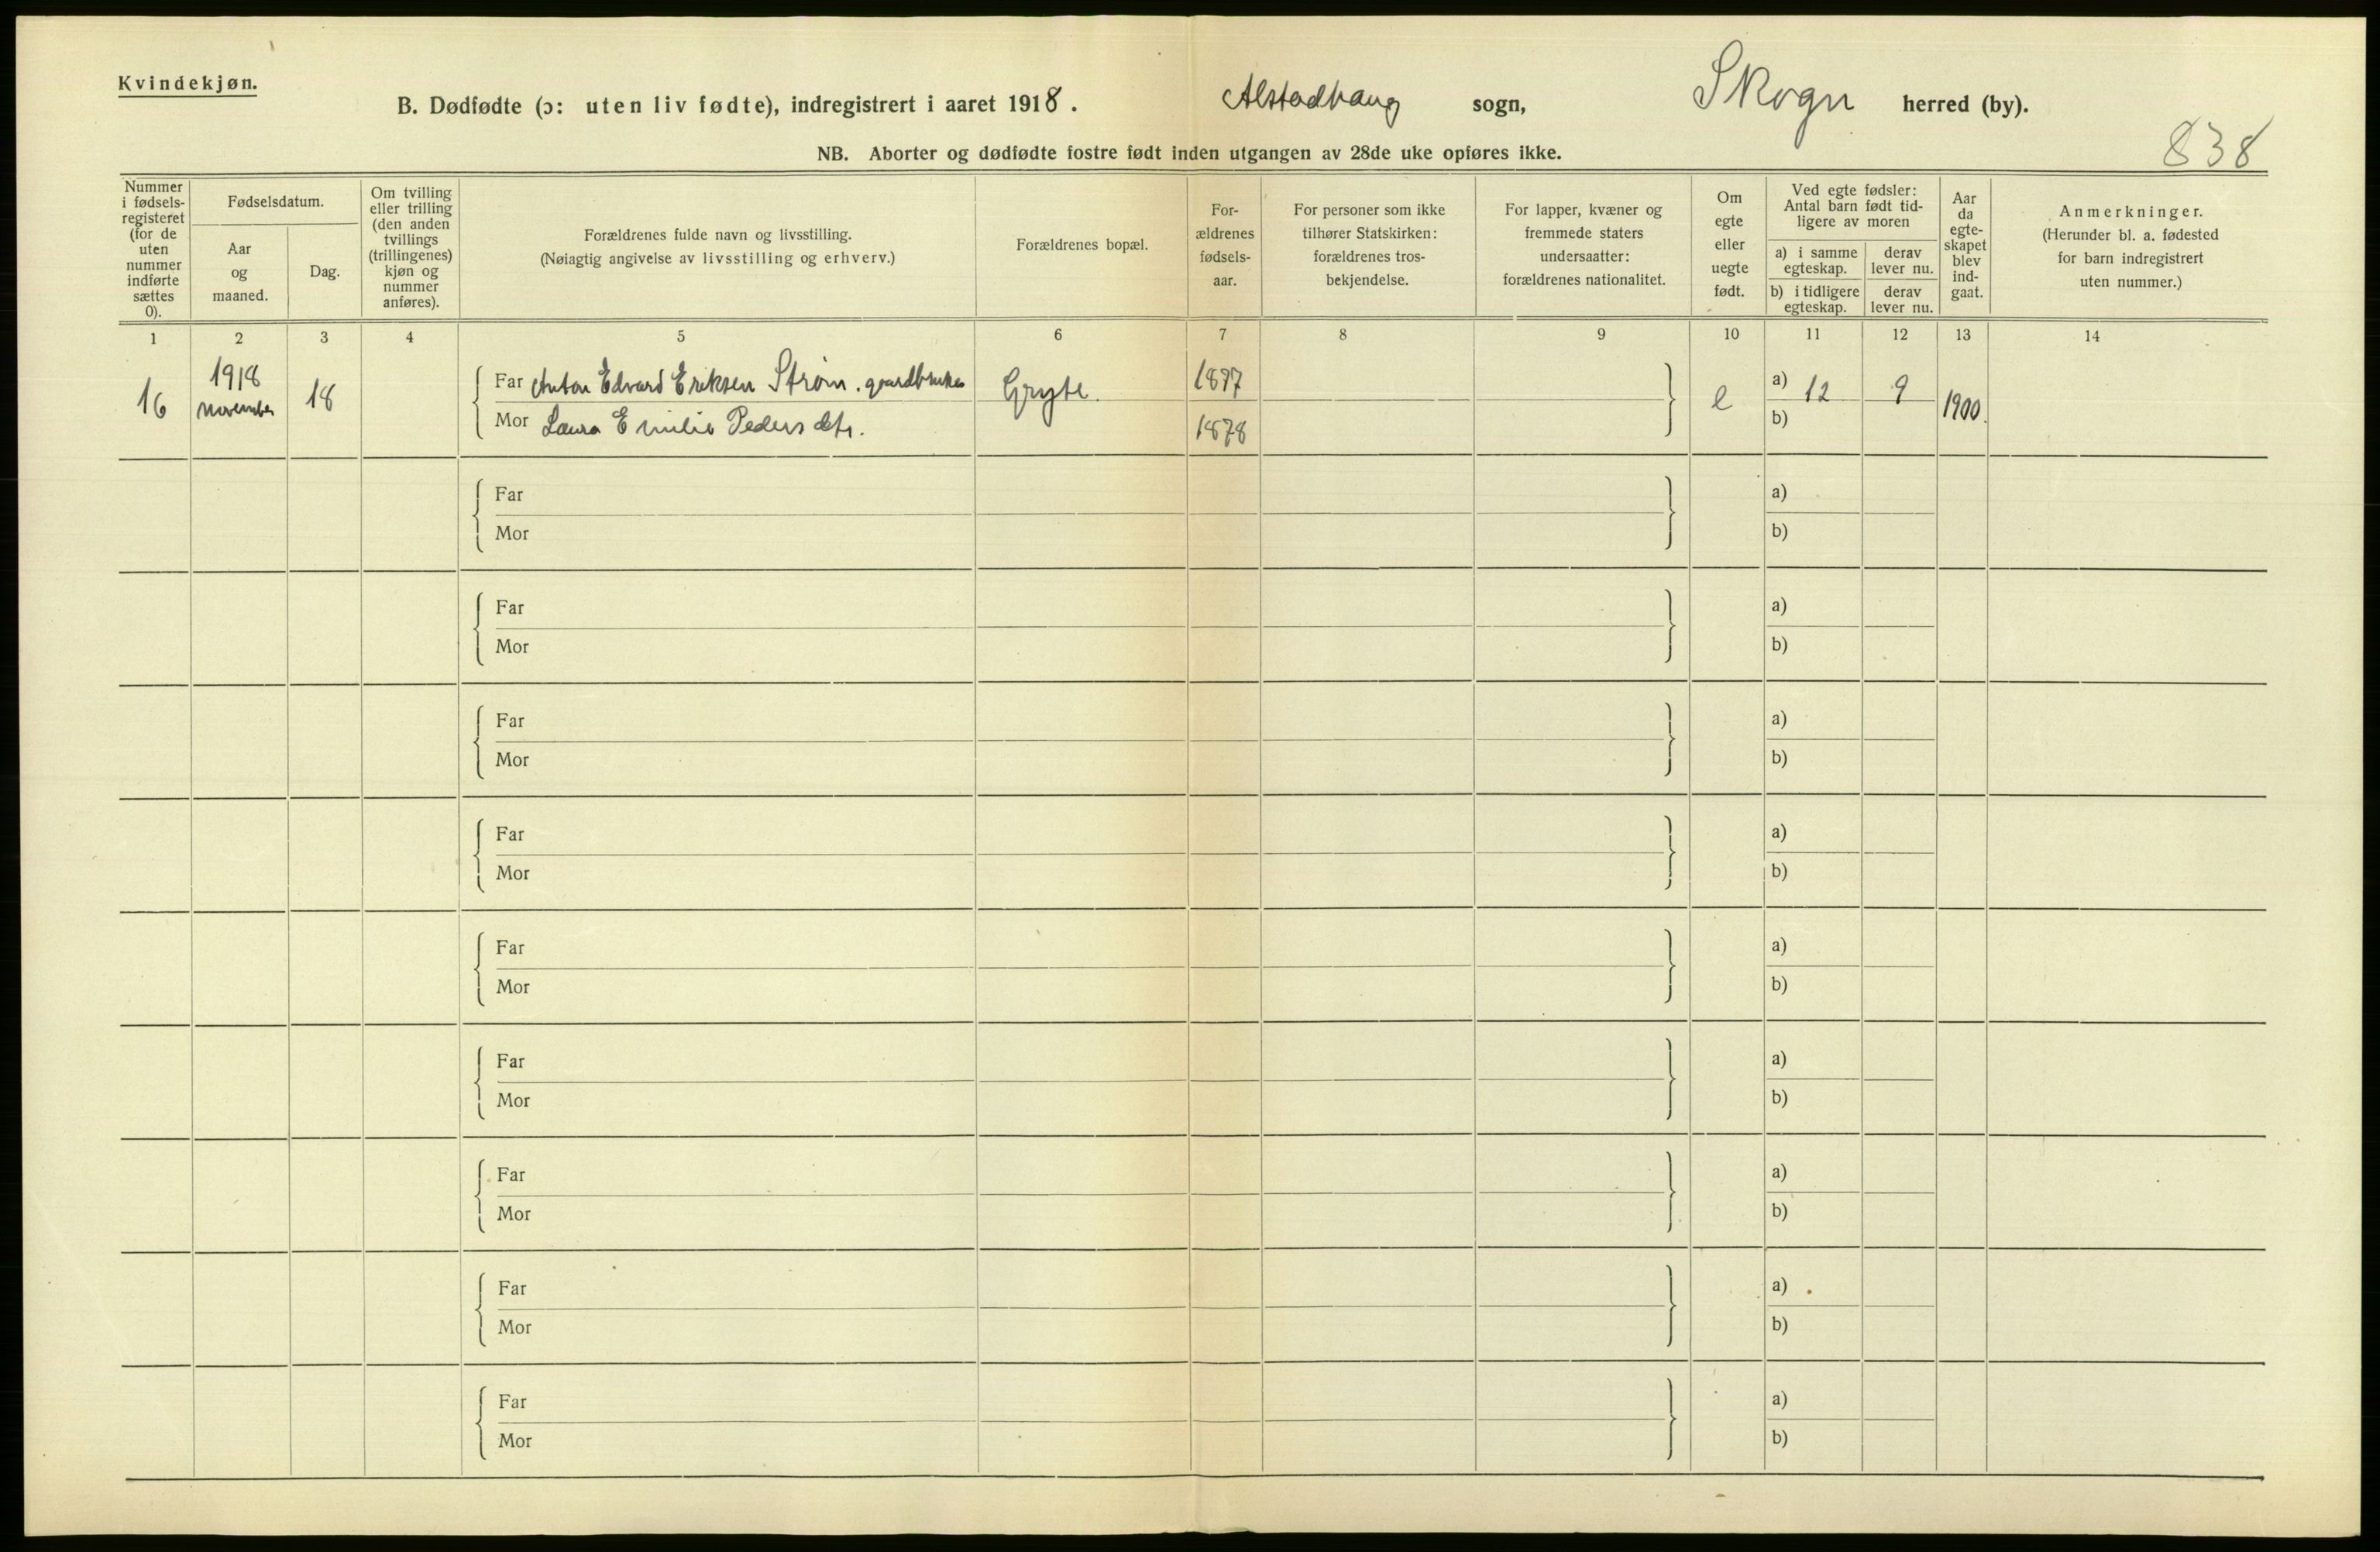 Kvindekjøn.
B. Dødfødte (ɔ: uten liv fødte), indregistrert i aaret 1918. Alstadhaug sogn, Skogn herred (by).
838
NB. Aborter og dødfødte fostre født inden utgangen av 28de uke opføres ikke.
Nummer
i fødsels-
registeret
(for de
uten
nummer
indførte
sættes
0).
Fødselsdatum.
Aar
og
maaned.
Dag.
Om tvilling
eller trilling
(den anden
tvillings
(trillingenes)
kjøn og
nummer
anføres).
Forældrenes fulde navn og livsstilling.
(Nøiagtig angivelse av livsstilling og erhverv.)
Forældrenes bopæl.
For-
ældrenes
fødsels-
aar.
For personer som ikke
tilhører Statskirken:
forældrenes tros-
bekjendelse.
For lapper, kvæner og
fremmede staters
undersaatter:
forældrenes nationalitet.
Om
egte
eller
uegte
født.
Ved egte fødsler:
Antal barn født tid-
ligere av moren
a) i samme
egteskap.
derav
lever nu.
b) i tidligere
egteskap.
derav
lever nu.
Aar
da
egte-
skapet
blev
ind-
gaat.
Anmerkninger.
(Herunder bl. a. fødested
for barn indregistrert
uten nummer.)
1 2 3 4 5 6 7 8 9 10 11 12 13 14
16
1918
november
18
Far Anton Edvard Eriksen Strøm. gaardbruker
Mor Laura Emilie Pedersdtr.
Gryte.
1877
1878
e
a) 12 9
b)
1900.
Far a)
Mor b)
Far a)
Mor b)
Far a)
Mor b)
Far a)
Mor b)
Far a)
Mor b)
Far a)
Mor b)
Far a)
Mor b)
Far a)
Mor b)
Far a)
Mor b)